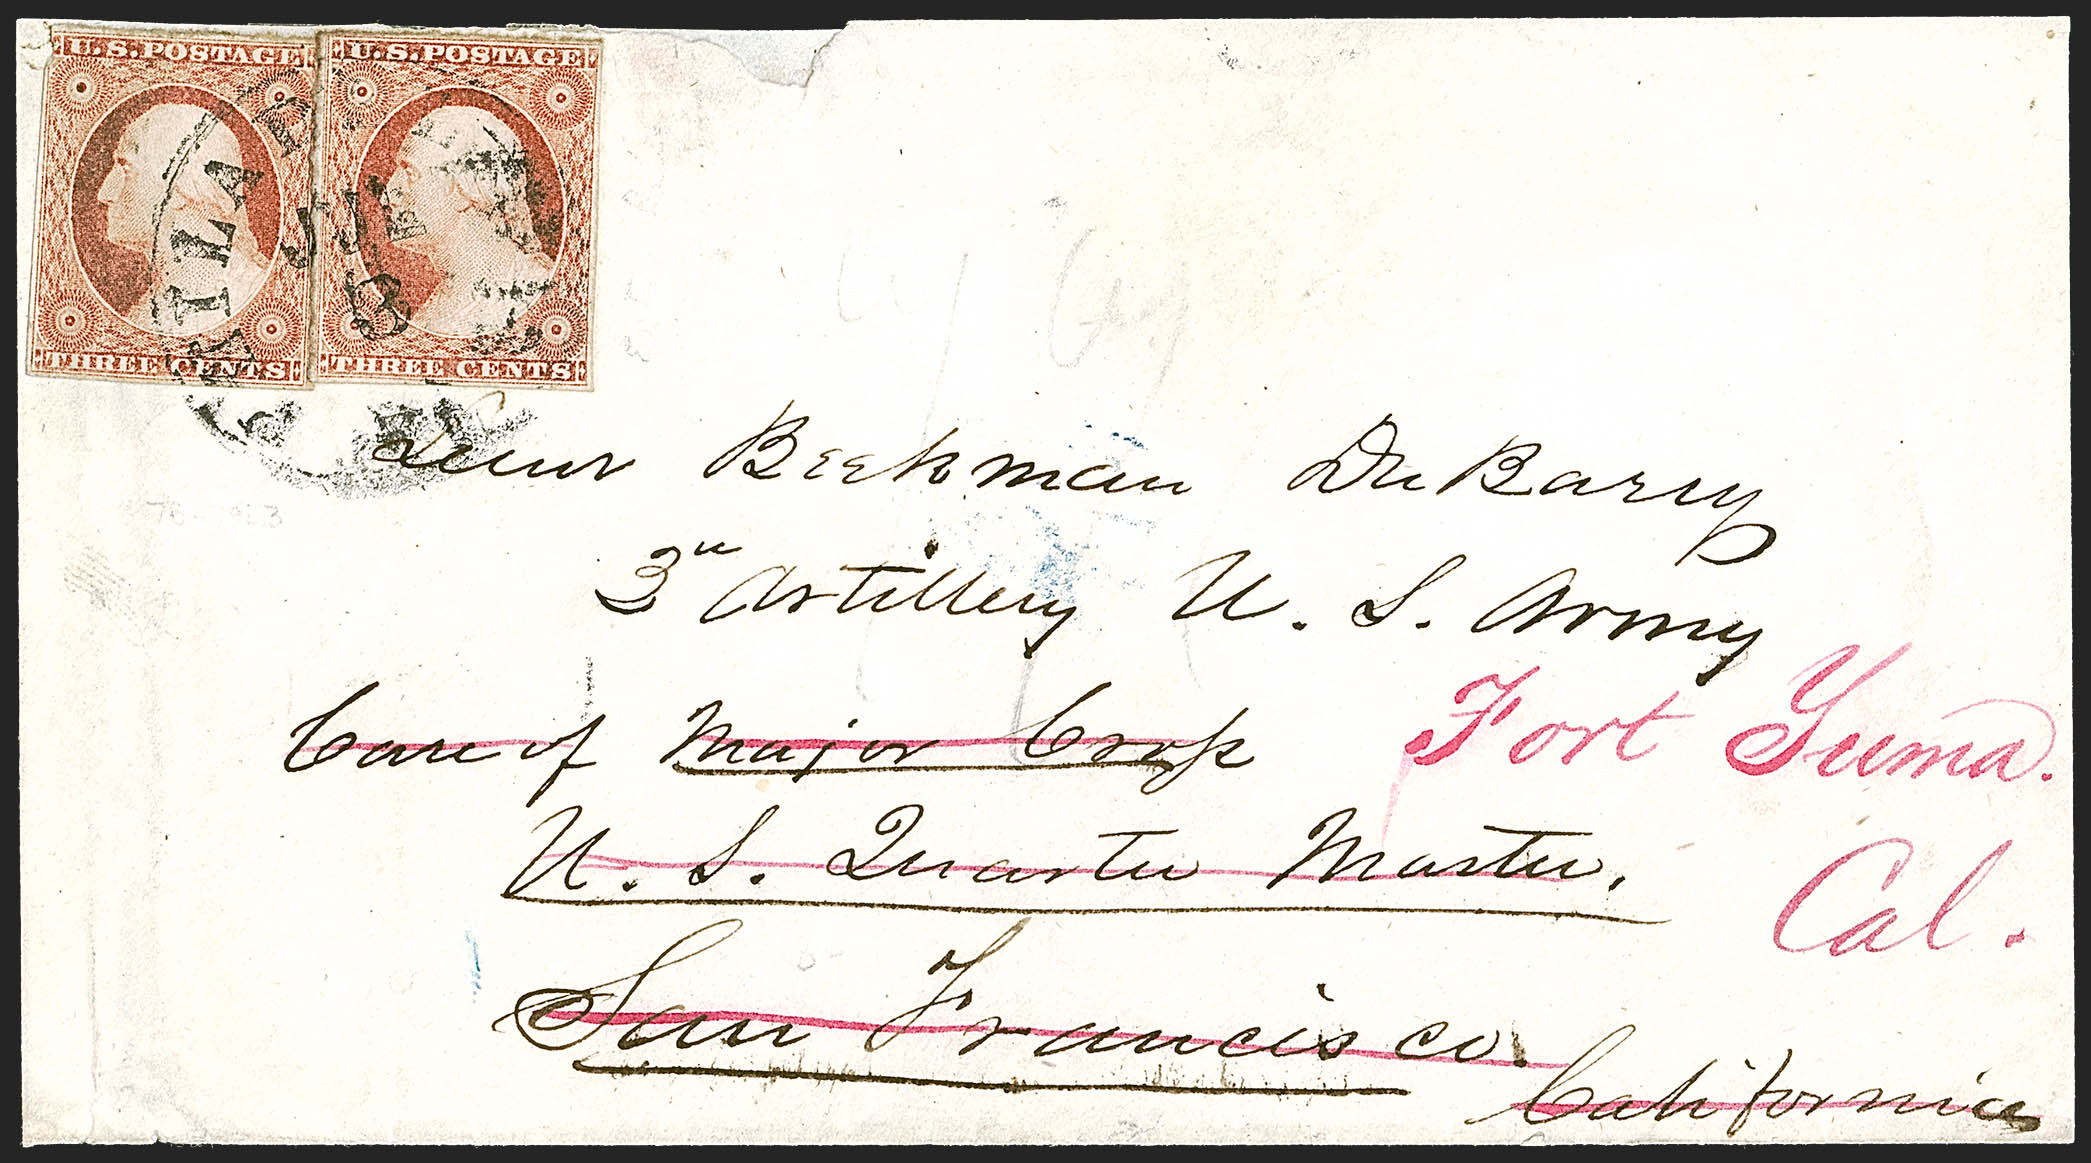 U.S. POSTAGE U.S. POSTAGE
THREE CENTS THREE CENTS
PHILADE
JUL
8
Lieut Beekman DuBarry
3d Artillery U. S. Army
Care of Major Cross
Fort Yuma.
U. S. Quarter Master.
Cal.
San Francisco.
California